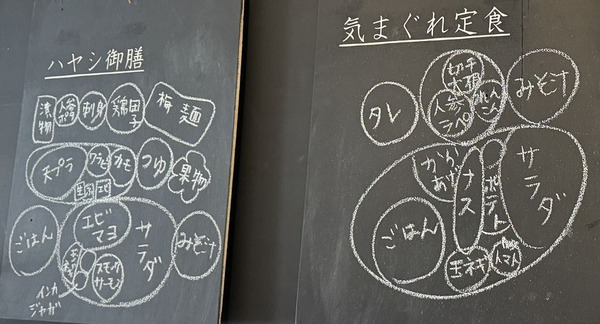 ハヤシ御膳
漬物
人参
ラペ
刺身
鶏団子
梅 麺
天プラ
ワラビ
カモ
つゆ
果物
ごはん
エビ
マヨ
サラダ
みそ汁
スモーク
サーモン
インカ
ジャガ
気まぐれ定食
切干
大根
人参
ラペ
れん
こん
みそ汁
タレ
から
あげ
ナス
ポテト
サラダ
ごはん
玉ネギ
トマト